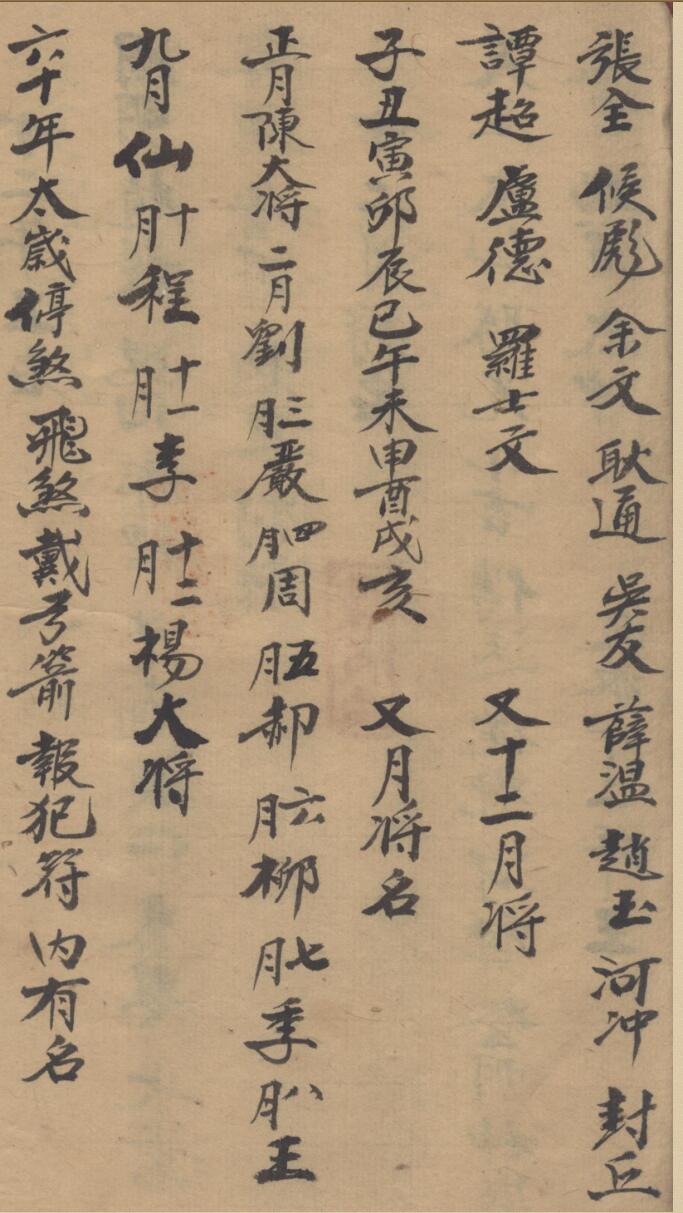 張全 候彪 余文 耿通 吳友 薛温 趙玉 河冲 封丘
譚超 盧德 羅士文 又十二月将
子丑寅卯辰巳午未申酉戌亥 又月将名
正月陳大将 二月劉 三月嚴 四月周 五月郝 六月柳 七月季 八月王
九月仙 十月程 十一月李 十二月楊大将
六十年太歲停煞飛煞戴弓箭報犯符内有名